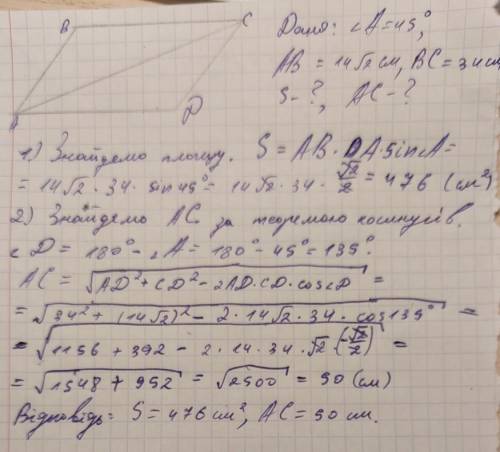 B C
A D
Дано: ∠A=45°,
AB = 14√2 см, BC = 34 см
S-?, AC-?
1) Знайдемо площу. S = AB · DA · sin∠A =
= 14√2 · 34 · sin 45° = 14√2 · 34 · √2/2 = 476 (см²)
2) Знайдемо AC за теоремою косинусів.
∠D = 180° - ∠A = 180° - 45° = 135°.
AC = √(AD² + CD² - 2AD·CD·cos∠D) =
= √(34² + (14√2)² - 2·14√2·34·cos135°) =
= √(1156 + 392 - 2·14·34·√2·(-√2/2)) =
= √(1548 + 952) = √2500 = 50 (см)
Відповідь: S = 476 см², AC = 50 см.